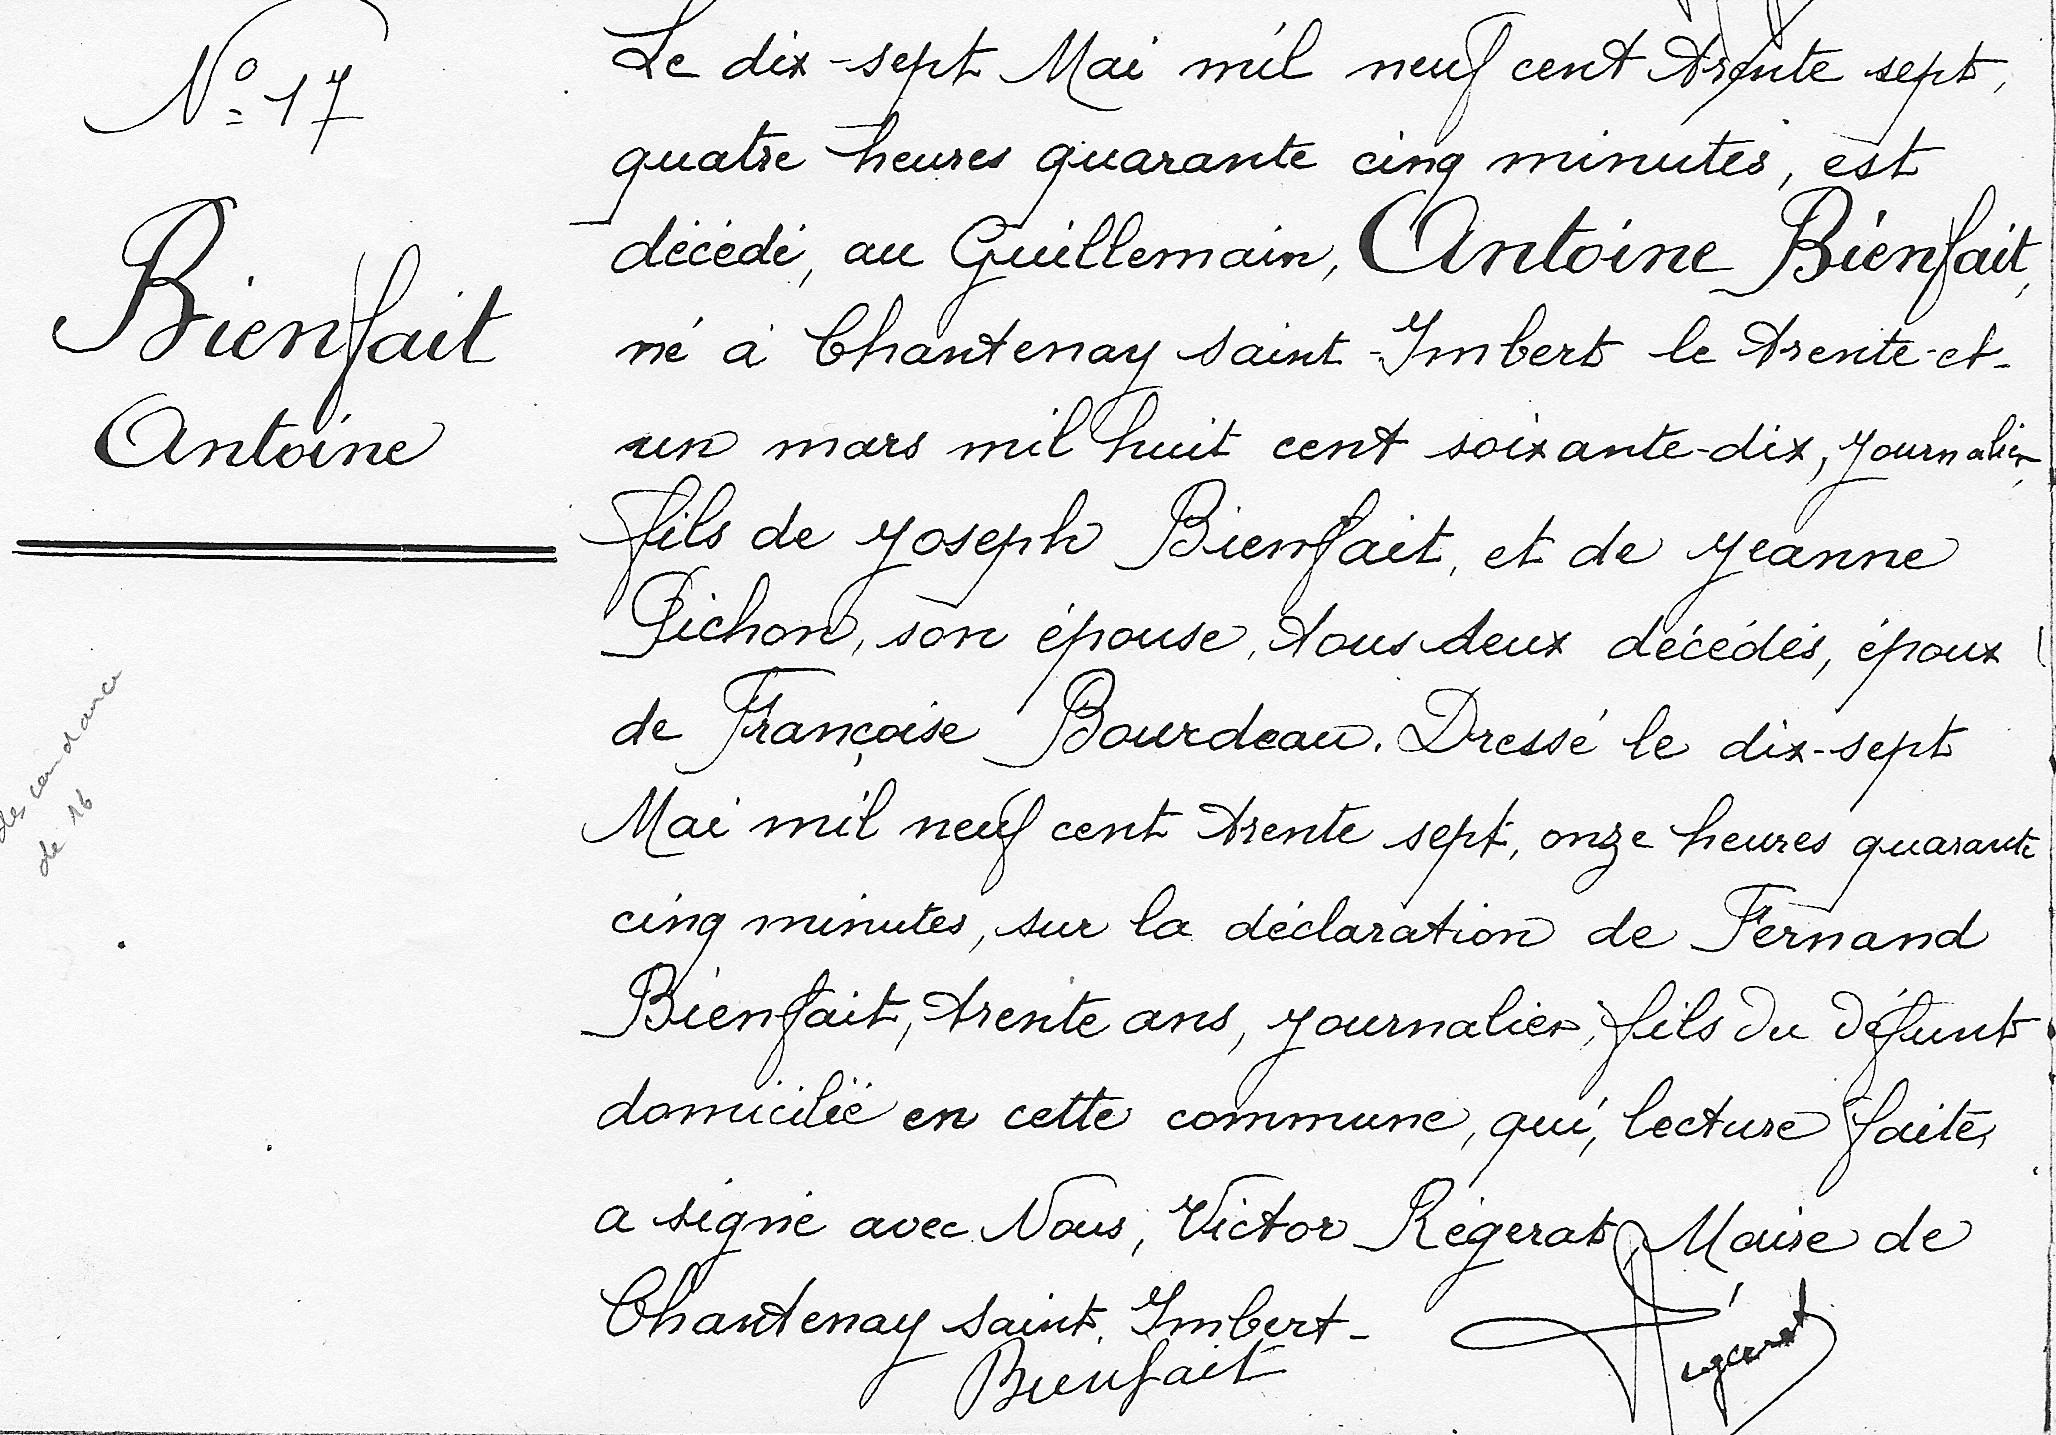 N° 17
Bienfait
Antoine
descendance
de 16
Le dix-sept Mai mil neuf cent trente sept,
quatre heures quarante cinq minutes, est
décédé, au Guillemain, Antoine Bienfait,
né à Chantenay saint-Imbert le trente-et-
un mars mil huit cent soixante-dix, journalier,
fils de Joseph Bienfait, et de Jeanne
Pichon, son épouse, tous deux décédés, époux
de Françoise Bourdeau. Dressé le dix-sept
Mai mil neuf cent trente sept, onze heures quarante
cinq minutes, sur la déclaration de Fernand
Bienfait, trente ans, journalier, fils du défunt
domicilié en cette commune, qui, lecture faite,
a signé avec Nous, Victor Régerat, Maire de
Chantenay saint-Imbert-
Bienfait
Régerat